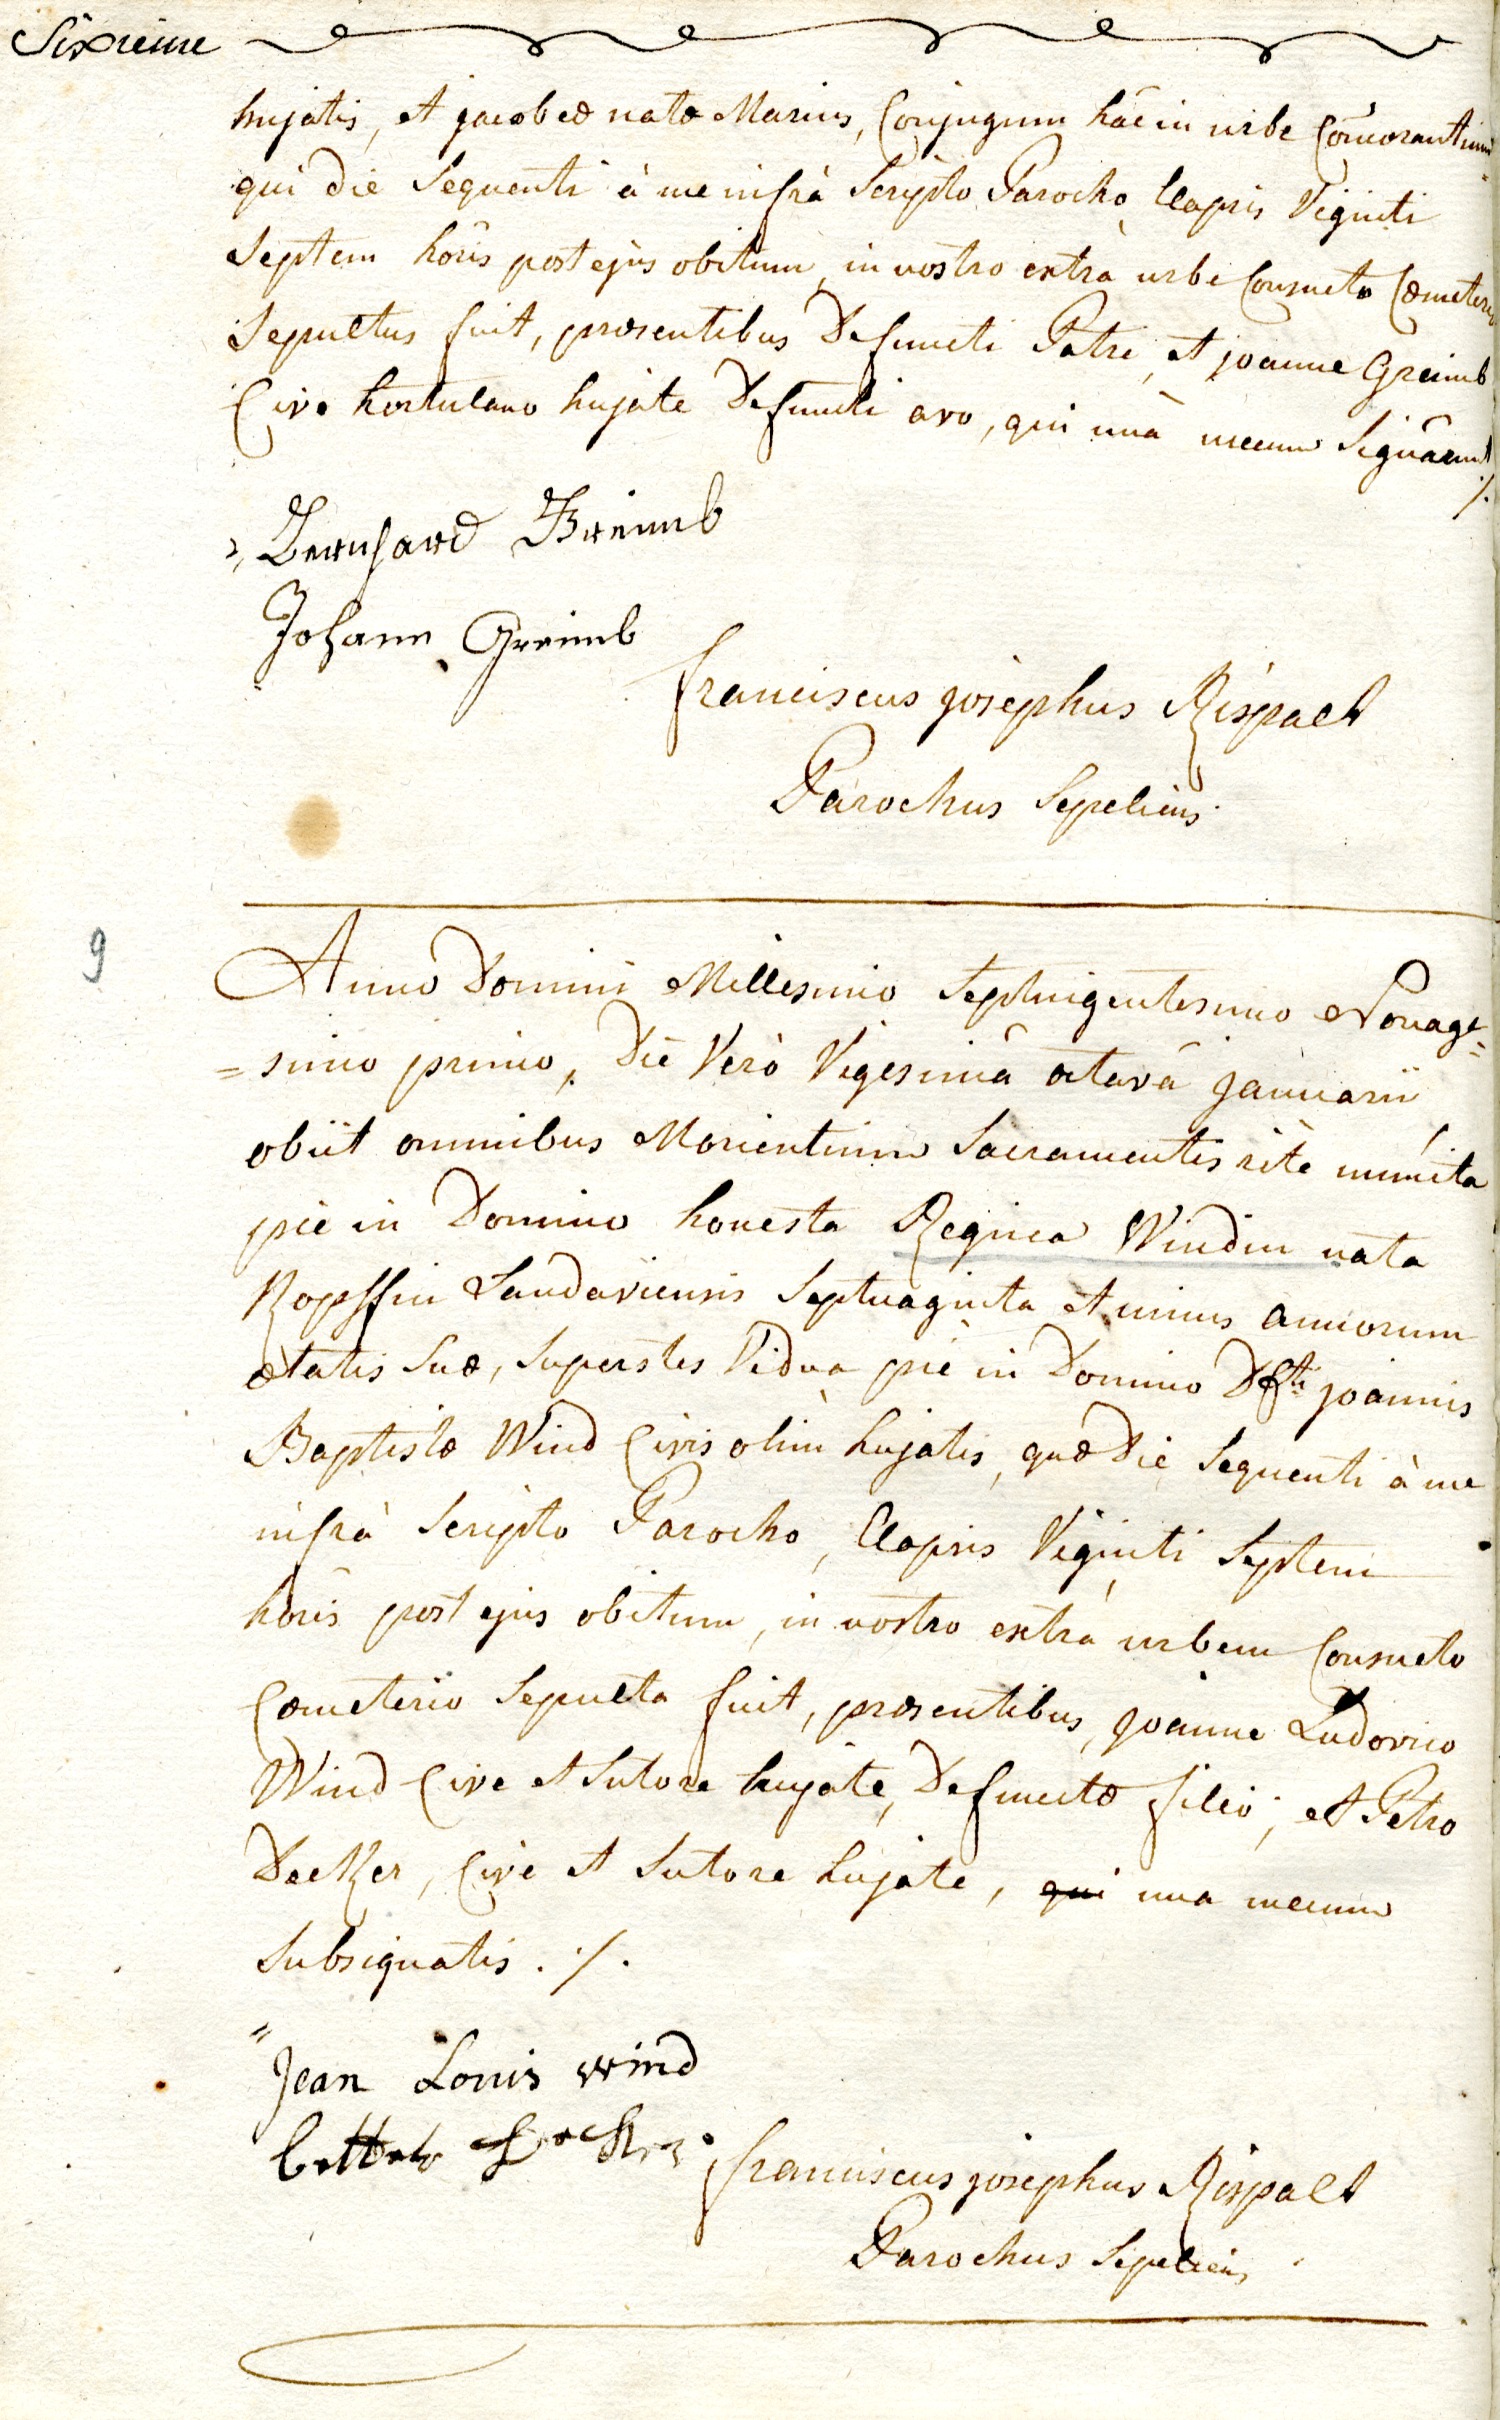 Sixieme
hujatis, et jacobeæ natæ Marius, Conjugum hâc in urbe Com̃orantium
qui die Sequenti à me infrà Scripto Parocho, Elapsis Viginti
Septem horis post ejus obitum, in nostro extrà urbe Consueto Cœmeterio
Sepultus fuit, præsentibus Defuncti Patre, et joanne Greimb
Cive hortulano hujate Defuncti avo, qui unà mecum Signârunt
./.
Bernhard Greimb
Johann Greimb
franciscus josephus Rispalt
Parochus Sepeliens.
9
Anno Domini Millesimo Septuigentesimo Nonage=
=simo primo, Die Verò Vigesimâ octavâ januarii
obiit omnibus Morientium Sacramentis ritè munita
piè in Domino honesta Regina Windin nata
Kopffin Landaviensis Septuaginta et unius annorum
ætatis Suæ, Superstes Vidua piè in Domino Dfti joannis
Baptistæ Wind Civis olim hujatis, quæ Die Sequenti à me
infrà Scripto Parocho, Elapsis Viginti Septem
horis post ejus obitum, in nostro extrà urbem Consueto
Cœmeterio Sepulta fuit, præsentibus, joanne Ludovico
Wind Cive et Sutore hujate, Defunctæ filio; et Petro
Decker, Cive et Sutore hujate, qui una mecum
Subsignatis ./.
Jean Louis wind
franciscus josephus Rispalt
Parochus Sepeliens